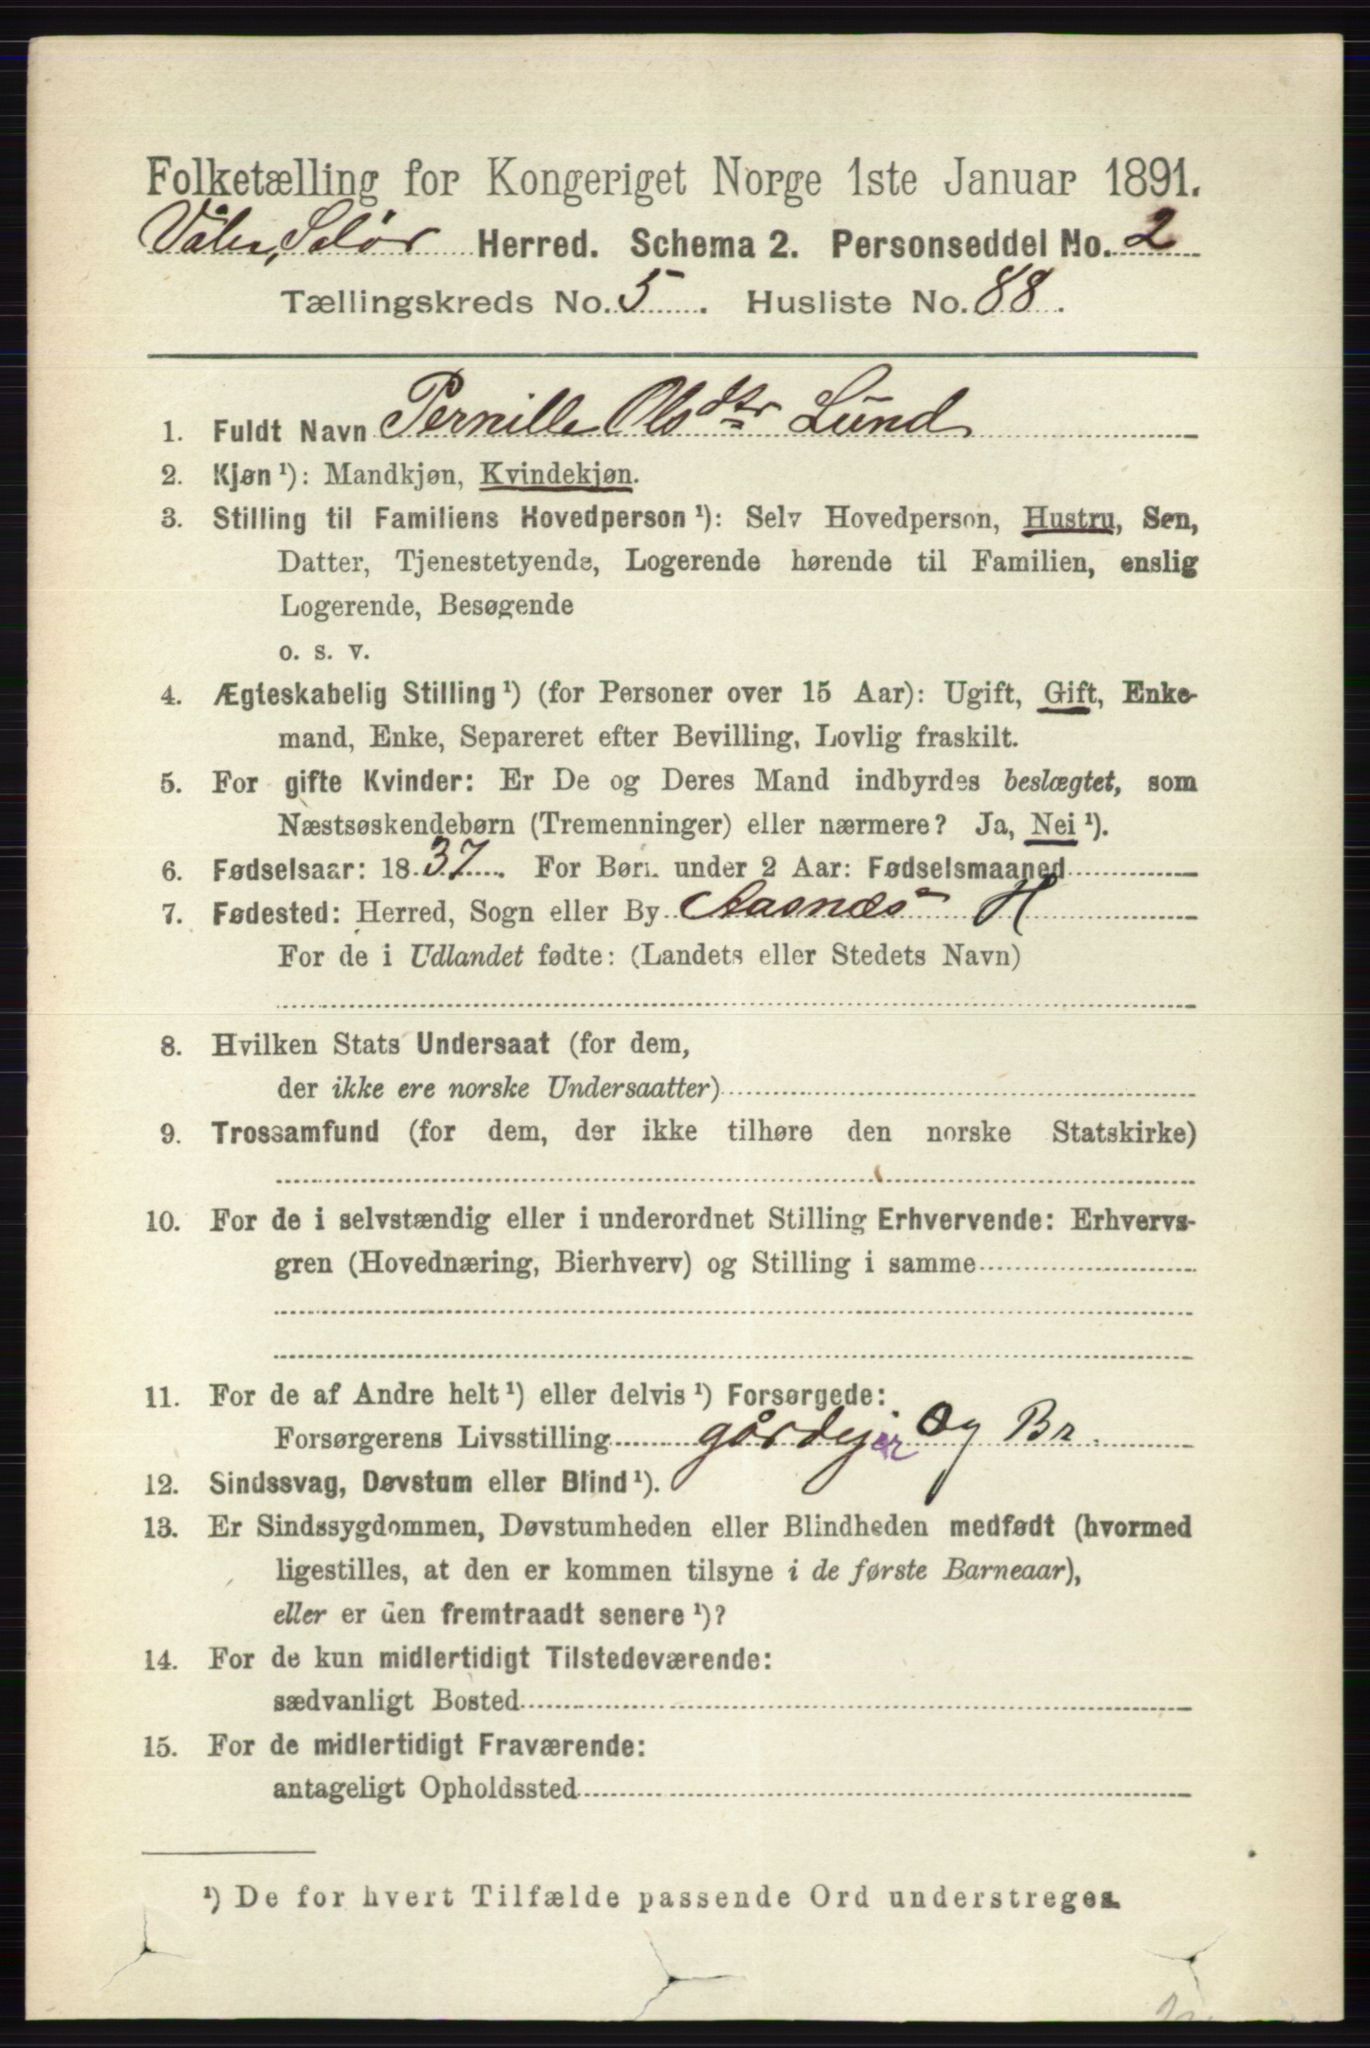 Folketælling for Kongeriget Norge 1ste Januar 1891.
Våler, Solør Herred. Schema 2. Personseddel No. 2
Tællingskreds No. 5. Husliste No. 88.
1. Fuldt Navn Pernille Olsdtr Lund
2. Kjøn ¹): Mandkjøn, Kvindekjøn.
3. Stilling til Familiens Hovedperson ¹): Selv Hovedperson, Hustru, Søn,
Datter, Tjenestetyende, Logerende hørende til Familien, enslig
Logerende, Besøgende
o. s. v.
4. Ægteskabelig Stilling ¹) (for Personer over 15 Aar): Ugift, Gift, Enke-
mand, Enke, Separeret efter Bevilling, Lovlig fraskilt.
5. For gifte Kvinder: Er De og Deres Mand indbyrdes beslægtet, som
Næstsøskendebørn (Tremenninger) eller nærmere? Ja, Nei ¹).
6. Fødselsaar: 1837. For Børn under 2 Aar: Fødselsmaaned
7. Fødested: Herred, Sogn eller By Aasnæs H
For de i Udlandet fødte: (Landets eller Stedets Navn)
8. Hvilken Stats Undersaat (for dem,
der ikke ere norske Undersaatter)
9. Trossamfund (for dem, der ikke tilhøre den norske Statskirke)
10. For de i selvstændig eller i underordnet Stilling Erhvervende: Erhvervs-
gren (Hovednæring, Bierhverv) og Stilling i samme
11. For de af Andre helt ¹) eller delvis ¹) Forsørgede:
Forsørgerens Livsstilling gårdejer og Br.
12. Sindssvag, Døvstum eller Blind ¹).
13. Er Sindssygdommen, Døvstumheden eller Blindheden medfødt (hvormed
ligestilles, at den er kommen tilsyne i de første Barneaar),
eller er den fremtraadt senere ¹)?
14. For de kun midlertidigt Tilstedeværende:
sædvanligt Bosted
15. For de midlertidigt Fraværende:
antageligt Opholdssted
¹) De for hvert Tilfælde passende Ord understreges.